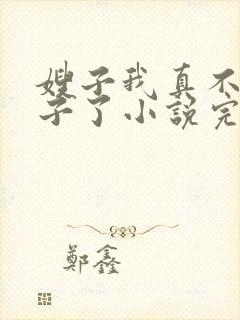 嫂子我真不
子了小說完
鄭鑫